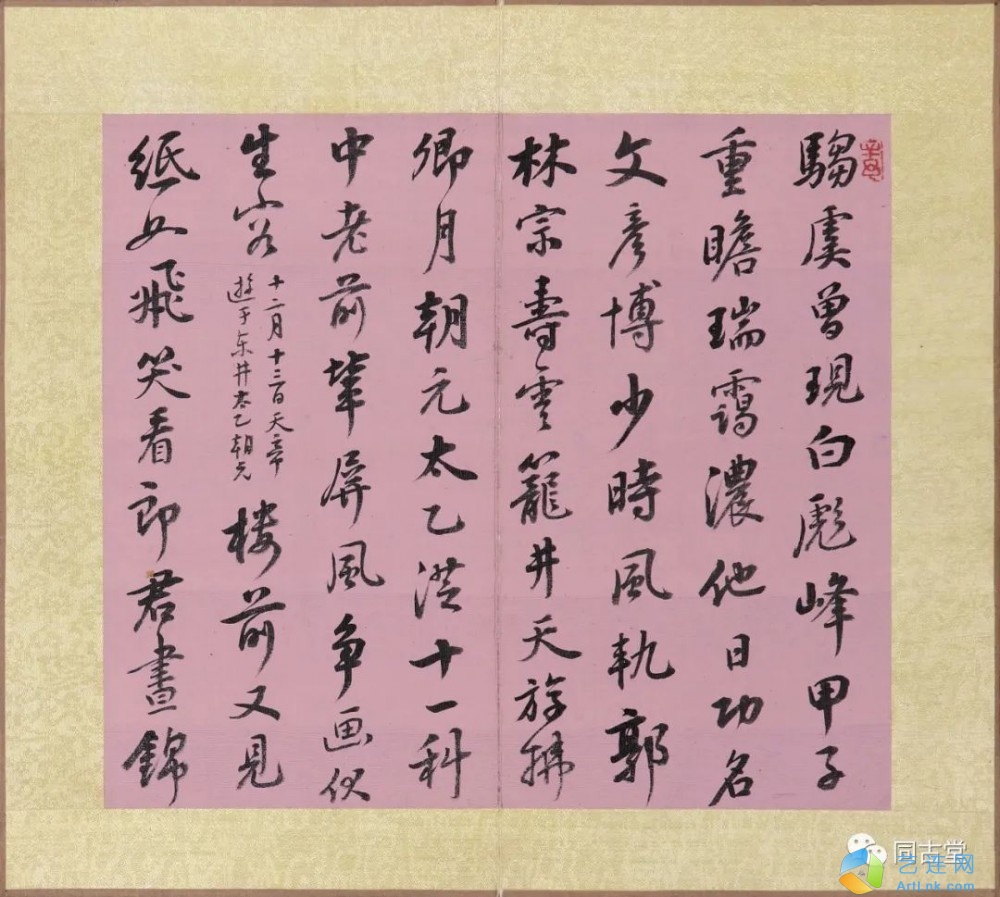 騶虞曾現白彪峰甲子
重瞻瑞靄濃他日功名
文彥博少時風軌郭
林宗壽雲籠井天旂拂
卿月朝元太乙十一科
中老前輩屏風争画伏
生容
十二月十三日天帝
遊于東井太乙朝元
樓前又見
紙如飛笑看郎君晝錦
同古堂
艺连网
ArtLpk.com